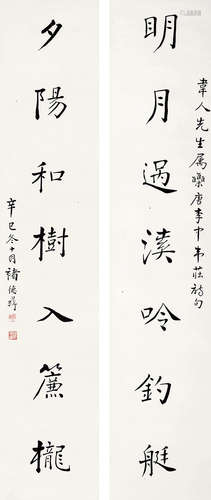 韋人先生属雧唐李中韋莊詩句
明月過溪吟釣艇
夕陽和樹入簾櫳
辛巳冬十月褚德彝